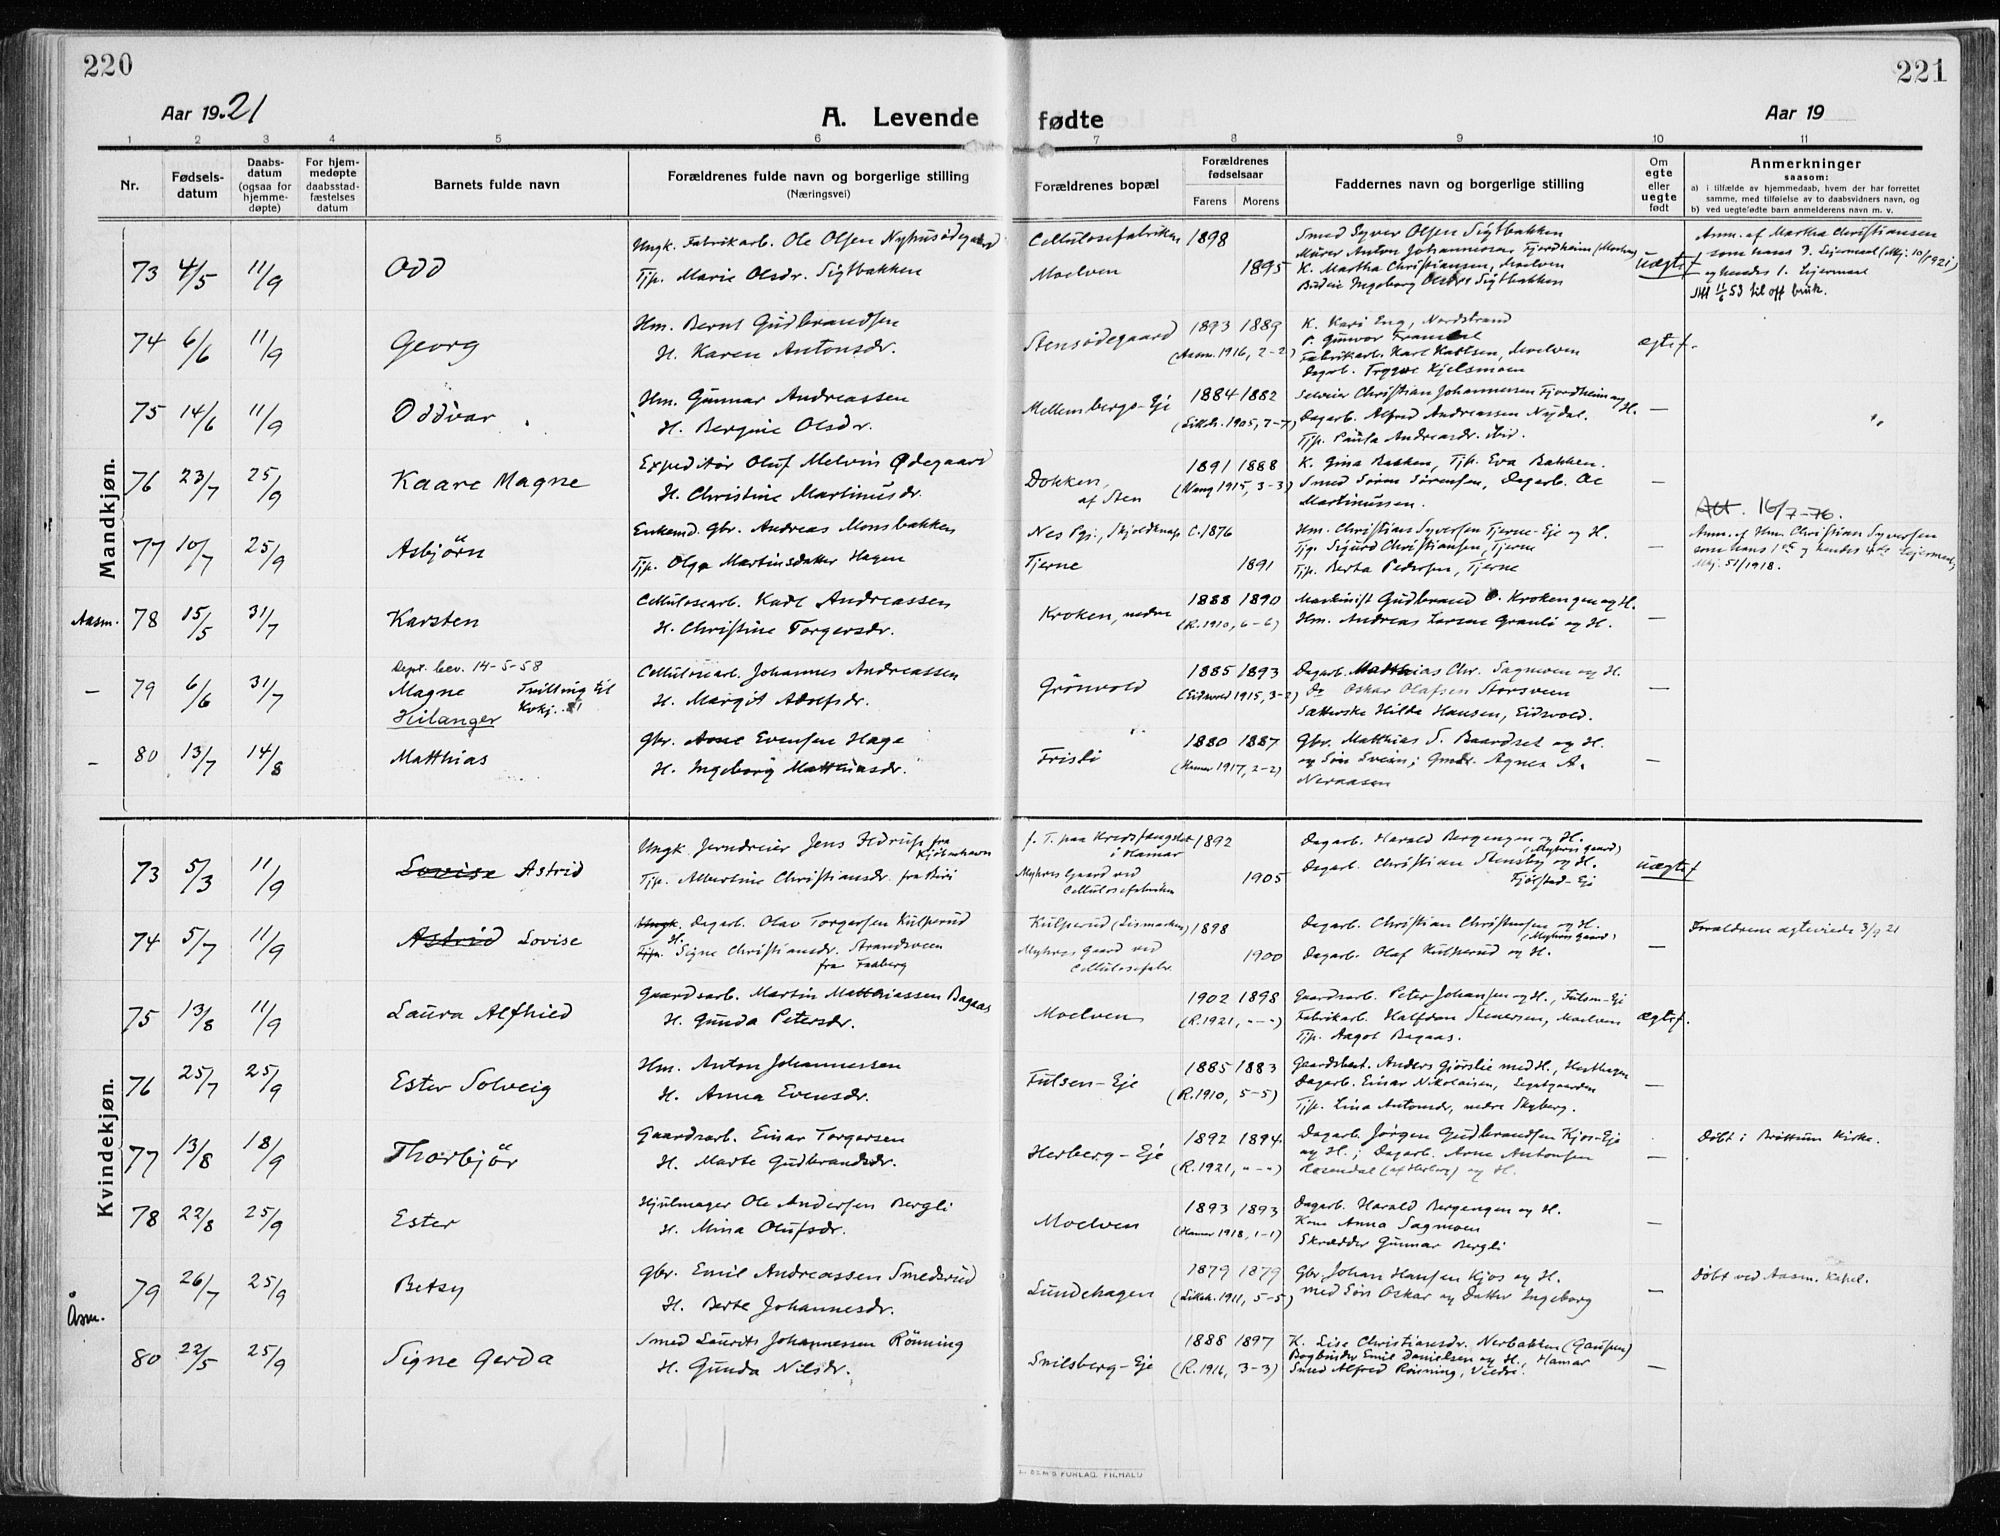 220
221
Aar 1921
A. Levende fødte
Aar 19
1 2 3 4 5 6 7 8 9 10 11
Nr.
Fødsels-
datum
Daabs-
datum
(ogsaa for
hjemme-
døpte)
For hjem-
medøpte
daabsstad-
fæstelses
datum
Barnets fulde navn
Forældrenes fulde navn og borgerlige stilling
(Næringsvei)
Forældrenes bopæl
Forældrenes
fødselsaar
Farens Morens
Faddernes navn og borgerlige stilling
Om
egte
eller
uegte
født
Anmerkninger
saasom:
a) i tilfælde av hjemmedaab, hvem der har forrettet
samme, med tilføielse av to daabsvidners navn, og
b) ved uegtefødte barn anmelderens navn m. v.
Mandkjøn.
73 4/5 11/9 Odd
Ungk. Fabrikarb. Ole Olsen Nyhusødegaard
Tjp. Marie Olsdr. Sigtbakken
Cellulosefabriken 1898
Moelven 1895
Smed Syver Olsen Sigtbakken
Murer Anton Johannesen Fjordheim (Moelven)
K. Martha Christiansen, Moelven
Budeie Ingeborg Olsdr. Sigtbakken
uægtef.
Anm. af Martha Christiansen
som hans 3. Leiermaal (Mkj. 10/1921)
og hendes 1. Leiermaal
Att 11/6 53 til off bruk.
74 6/6 11/9 Georg
Hm. Bernt Gudbrandsen
H. Karen Antonsdr.
Stensødegaard 1893 1889
(Aasm. 1916, 2-2)
K. Kari Eng, Nordstrand
P. Gunvor
Fabrikarb. Karl Karlsen, Moelven
Dagarb. Trygve Kjelsmoen
ægtef.
75 14/6 11/9 Oddvar
Hm. Gunnar Andreassen
H. Bergine Olsdr.
Mellemsberg-Eje 1884 1882
1905, 7-7)
Selveier Christian Johannessen Fjordheim og H.
Dagarb. Alfred Andreassen Nydal.
Tjp. Paula Andreasdr. ibid.
—
76 23/7 25/9 Kaare Magne
Expeditør Oluf Melvin Ødegaard
H. Christine Martinusdr.
Dokken, af Sten 1891 1888
(Vang 1915, 3-3)
K. Gina Bakken, Tjp. Eva Bakken.
Smed Søren Sørensen, Dagarb. Ole
Martinussen.
—
77 10/7 25/9 Asbjörn
Enkemd. Gbr. Andreas Monsbakken
Tjp. Olga Martinsdatter Hagen
Nes Pgj., Skjoldknap C. 1876
Tjerne 1891
Hm. Christian Syversen Tjerne-Eje og H.
Tjp. Sigurd Christiansen, Tjerne
Tjp. Berta Pedersen, Tjerne
—
Att. 16/7-76.
Anm. af Hm. Christian Syversen
som hans 1ste og hendes 4de Leiermaal,
Mkj. 51/1918.
Aasm. 78 15/5 31/7 Karsten
Cellulosearb. Karl Andreassen
H. Christine Torgersdr.
Kroken, nedre 1888 1890
(R. 1910, 6-6)
Maskinist Gudbrand O. Krokengen og H.
Hm. Andreas Larsen Granli og H.
—
– 79 6/6 31/7
Dept. bev. 14-5-58
Magne Tvilling til
Heilanger Kvkj.
Cellulosearb. Johannes Andreassen
H. Margit Adolfsdr.
Grönvold 1885 1893
(Eidsvold 1915, 3-2)
Dagarb. Matthias Chr. Sagmoen og H.
Do Oskar Olafsen Storsveen
Sætterske Hilda Hansen, Eidsvold.
—
– 80 13/7 14/8 Matthias
Gbr. Arne Evensen Hage
H. Ingeborg Matthiasdr.
Fristi 1880 1887
(Hamar 1917, 2-2)
Gbr. Matthias S. Baardset og H.
og Søn Svein; Gmdr. Agnes A.
Neraasen
—
Kvindekjøn.
73 5/3 11/9 Lovise Astrid
Ungk. Jerndreier Jens Hdrup fra
Kjøbenhavn
Tjp. Albertine Christiansdr. fra Biri
f. T. paa Kredsfængslet
i Hamar 1892
Myhres Gaard ved
Cellulosefabriken 1905
Dagarb. Harald Bergengen og H.
(Myhres gaard)
Dagarb. Christian Stensby og H.
Fjølstad-Eje
uægtef
74 5/7 11/9 Astrid Lovise
Ungk. Dagarb. Olav Torgersen Kulperud
H.
Tjp. Signe Christiansdr. Strandsveen
fra Faaberg
Kulperud (Lismarken) 1898
Myhres Gaard ved
Cellulosefabr. 1900
Dagarb. Christian Christensen og H.
(Myhres gaard)
Dagarb. Olaf Kulperud og H.
—
Forældrene ægteviede 3/9 21
75 13/8 11/9 Laura Alfhild
Gaardsarb. Martin Matthiassen Bagaas
H. Gunda Petersdr.
Moelven 1902 1898
(R. 1921, „-„)
Gaardsarb. Peter Johansen og H., Fulsen-Eje
Fabrikarb. Halfdan Stenersen, Moelven
Tjp. Dagot Bagaas.
ægtef.
76 25/7 25/9 Ester Solveig
Hm. Anton Johannessen
H. Anna Evensdr.
Fulsen-Eje 1885 1883
(R. 1910, 5-5)
Gaardsbest. Anders Gjørslie med H., Hesthagen
Dagarb. Einar Nikolaisen,
Tjp. Lina Antonsdr, nedre Skyberg.
—
77 13/8 18/9 Thorbjör
Gaardsarb. Einar Torgersen
H. Marte Gudbrandsdr.
Herberg-Eje 1892 1894
(R. 1921, „-„)
Dagarb. Jørgen Gudbrandsen Kjos-Eje
og H.; Dagarb. Arne Antonsen
Rosendal (af Herberg) og H.
—
Døbt i Brøttum Kirke.
78 22/8 25/9 Ester
Hjulmager Ole Andersen Bergli
H. Mina Olufsdr.
Moelven 1893 1893
(Hamar 1918, 1-1)
Dagarb. Harald Bergengen og H.
Kone Anna Sagmoen
Skrædder Gunnar Bergli
—
79 26/7 25/9 Betsy
Gbr. Emil Andreassen Smedsrud
H. Berte Johannesdr.
Lundehagen 1879 1879
1911, 5-5)
Gbr Johan Hansen Kjos og H.
med Søn Oskar og Datter Ingeborg
—
Døbt ved Aasm. Kapel.
Åsm. 80 22/5 25/9 Signe Gerda
Smed Laurits Johannessen Rönning
H. Gunda Nilsdr.
Snilsberg-Eje 1888 1897
(R. 1916, 3-3)
K. Lise Christiansdr. Nerbakken (Gaupen)
Bogbinder Emil Danielsen og H., Hamar
Smed Alfred Rönning, Veldre.
—